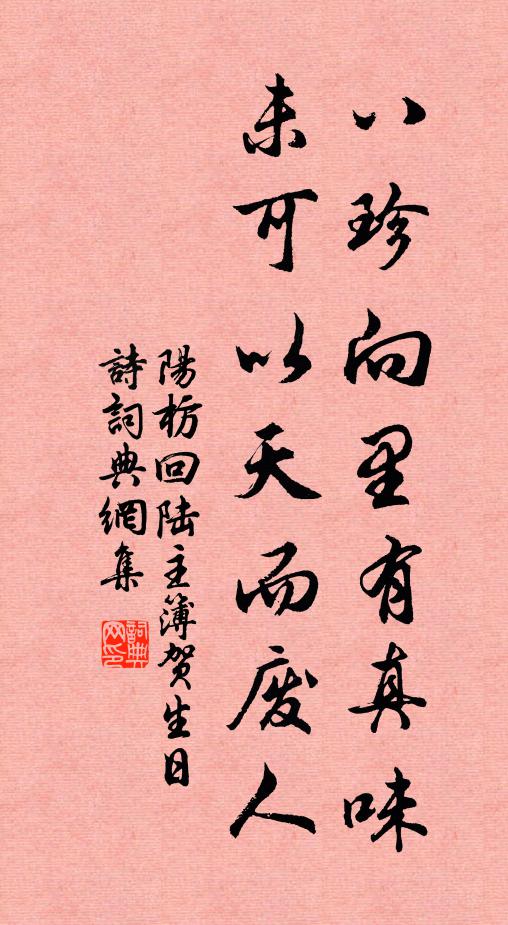 八珍向里有真味
未可以天而废人
陽枋回陆主簿贺生日
詩詞典網集
詞典
网印